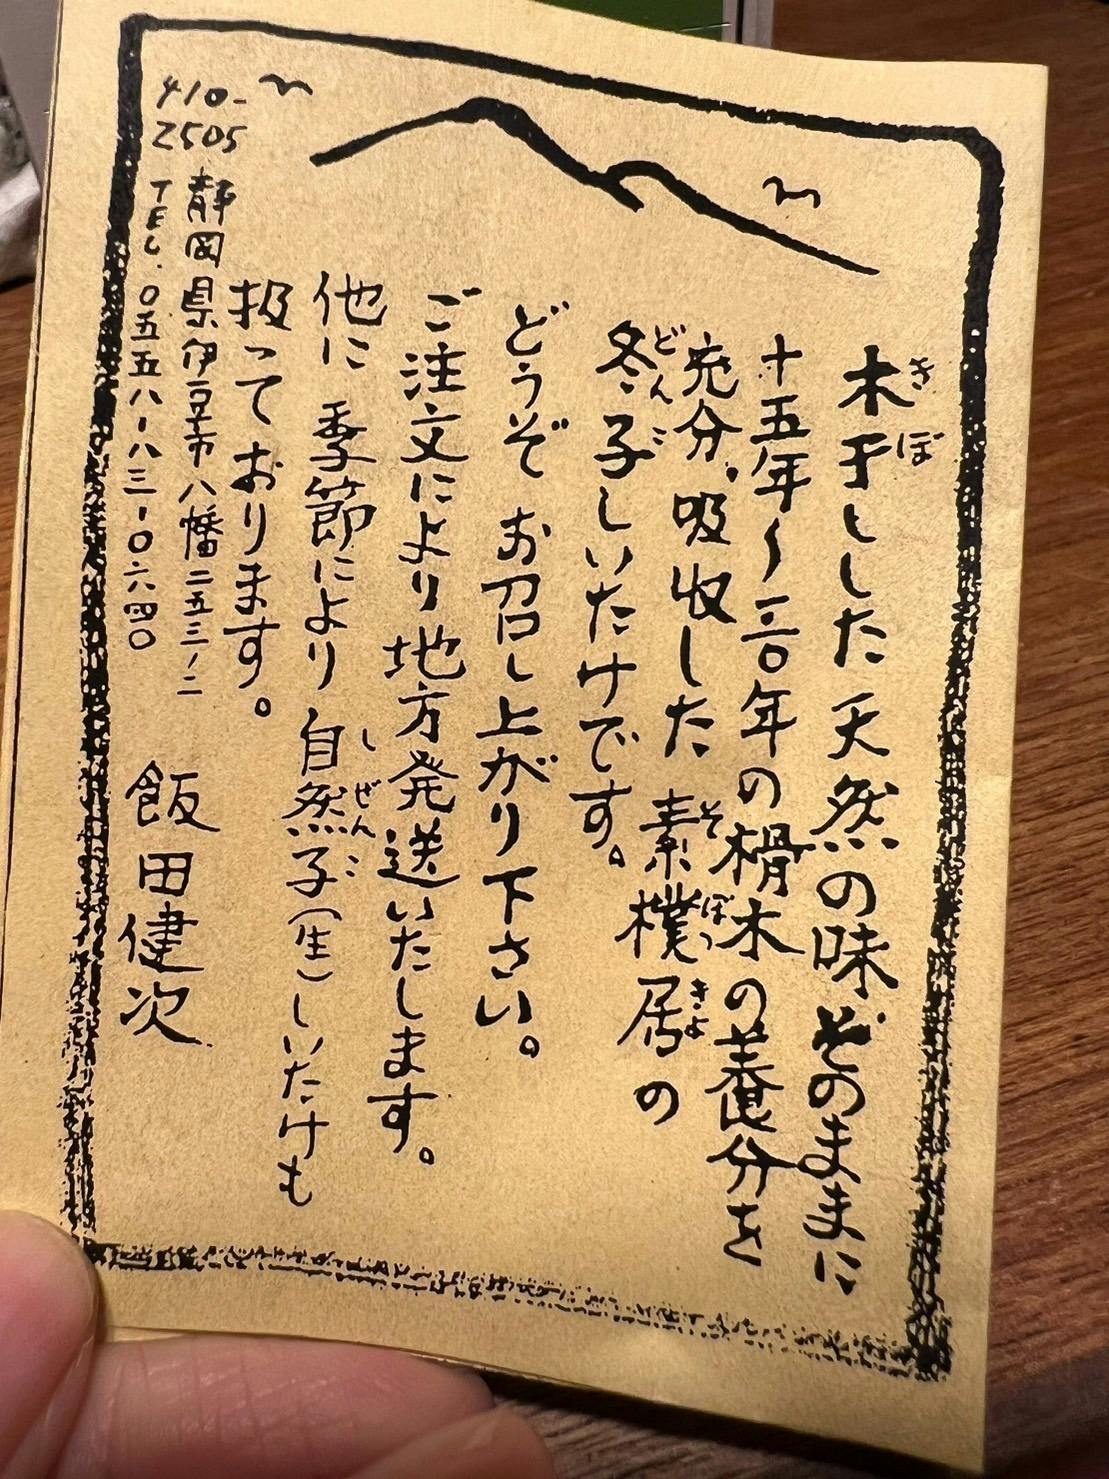 木干しした天然の味そのままに
十五年〜二〇年の榾木の養分を
充分、吸収した 素樸居の
冬子しいたけです。
どうぞ お召し上がり下さい。
ご注文により地方発送いたします。
他に 季節により 自然子(生)しいたけも
扱っております。
410-
2505
静岡県伊豆市八幡二五三ノ二
TEL.〇五五八-八三-〇六四〇
飯田健次